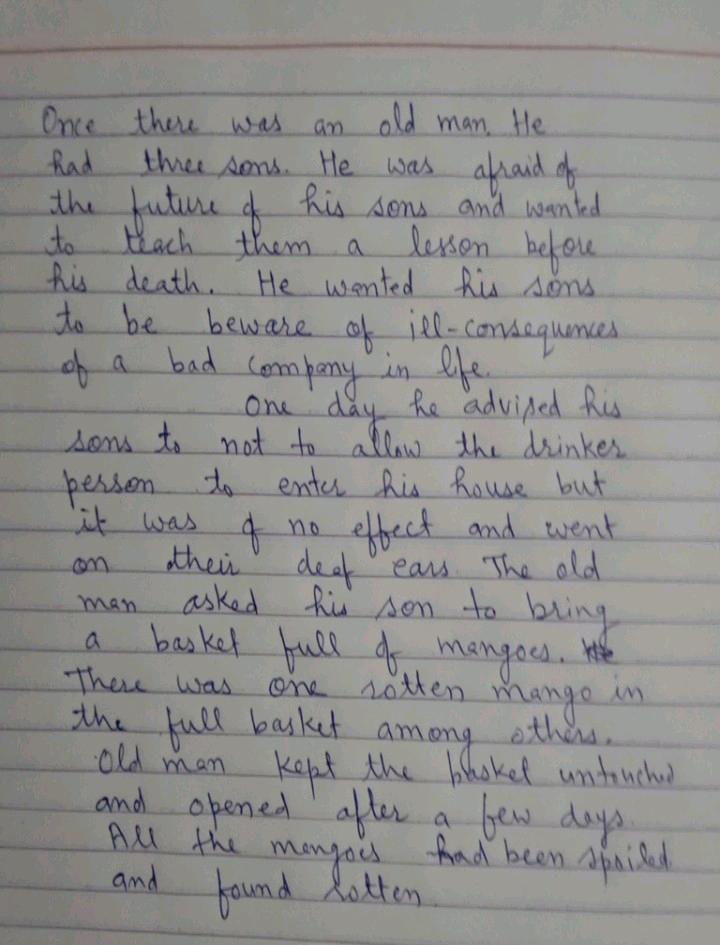 Once there was an old man. He
had three sons. He was afraid of
the future of his sons and wanted
to teach them a lesson before
his death. He wanted his sons
to be beware of ill-consequences
of a bad company in life.
One day he advised his
sons to not to allow the drinker
person to enter his house but
it was of no effect and went
on their deaf ears. The old
man asked his son to bring
a basket full of mangoes.
There was one rotten mango in
the full basket among others.
Old man kept the basket untouched
and opened after a few days.
All the mangoes had been spoiled
and found rotten.